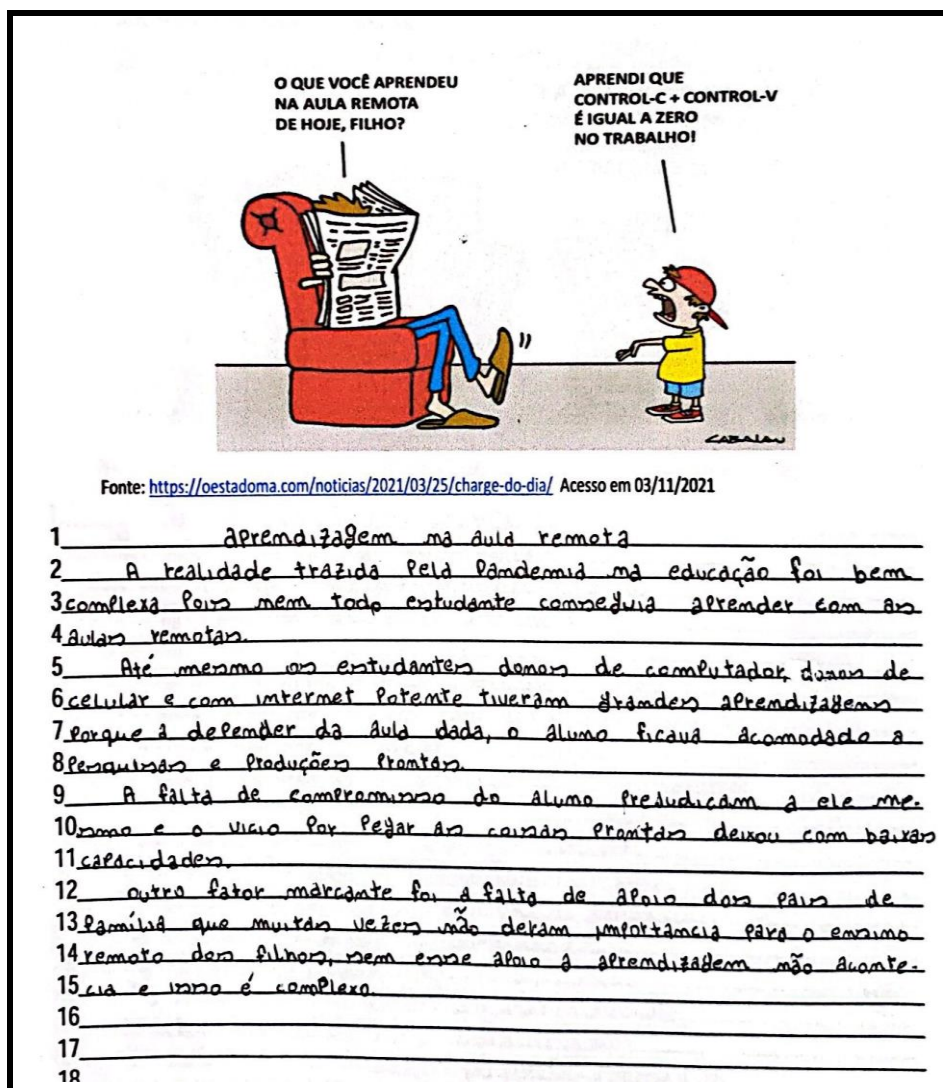 O QUE VOCÊ APRENDEU
NA AULA REMOTA
DE HOJE, FILHO?
APRENDI QUE
CONTROL-C + CONTROL-V
É IGUAL A ZERO
NO TRABALHO!
CABALAU
Fonte: https://oestadoma.com/noticias/2021/03/25/charge-do-dia/ Acesso em 03/11/2021
1 aprendizagem na aula remota
2 A realidade trazida pela pandemia na educação foi bem
3 complexa pois nem todo estudante conseguia aprender com as
4 aulas remotas.
5 Até mesmo os estudantes donos de computador, donos de
6 celular e com internet potente tiveram grandes aprendizagens
7 porque a depender da aula dada, o aluno ficava acomodado a
8 pesquisas e produções prontas.
9 A falta de compromisso do aluno prejudicam a ele me-
10 smo e o vicio por pegar as coisas prontas deixou com baixas
11 capacidades.
12 outro fator marcante foi a falta de apoio dos pais de
13 família que muitas vezes não deram importância para o ensino
14 remoto dos filhos, sem esse apoio a aprendizagem não aconte-
15 cia e isso é complexo.
16
17
18